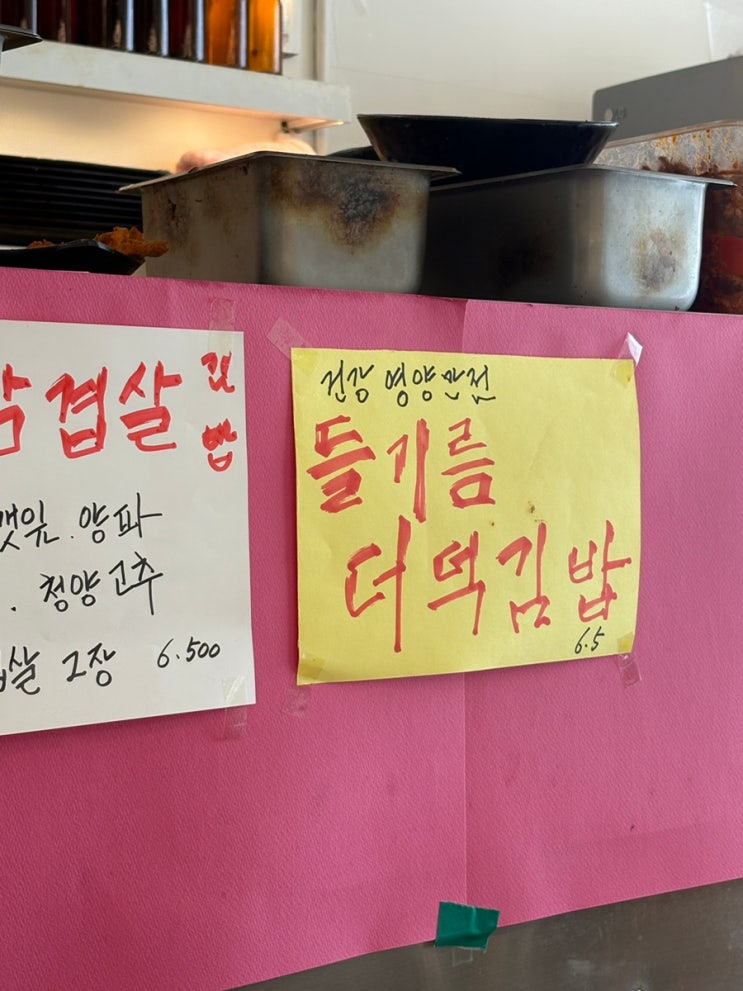 삼겹살 김밥
깻잎.양파
. 청양고추
겹살 2장 6.500
건강 영양만점
들기름
더덕김밥
6.5